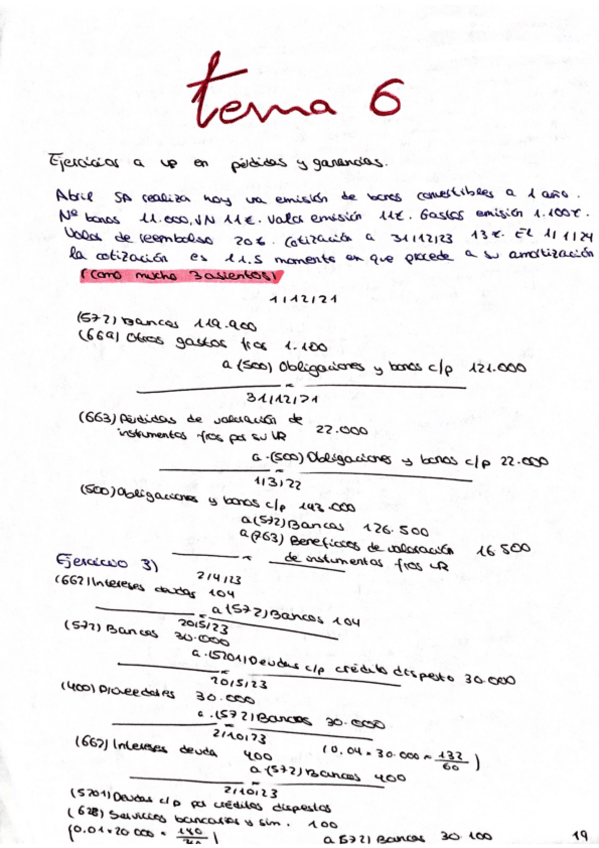 tema 6
Ejercicios a vp en pérdidas y ganancias.
Abril SA realiza hoy una emisión de bonos convertibles a 1 año.
Nº bonos 11.000, VN 11€. Valor emisión 11€. Gastos emisión 1.100€.
Valor de reembolso 20€. Cotización a 31/12/23 13€. El 1/1/24
la cotización es 11.5 momento en que procede a su amortización
(como mucho 3 asientos)
1/12/21
(572) Bancos 119.900
(669) Otros gastos fros 1.100
a (500) Obligaciones y bonos c/p 121.000
31/12/21
(663) Pérdidas de valoración de
instrumentos fros por su VR 22.000
a (500) Obligaciones y bonos c/p 22.000
1/3/22
(500) Obligaciones y bonos c/p 143.000
a (572) Bancos 126.500
a (763) Beneficios de valoración 16 500
de instrumentos fros VR
Ejercicio 3)
2/4/23
(662) Intereses deudas 104
a (572) Bancos 104
20/5/23
(572) Bancos 30.000
a (5201) Deudas c/p crédito dispesto 30.000
20/5/23
(400) Proveedores 30.000
a (572) Bancos 30.000
2/10/23
(662) Intereses deuda 400 (0,04 × 30.000 ×
a (572) Bancos 400
2/10/23
(5201) Deudas c/p por créditos dispestos
(626) Servicios bancarios y sim. 100
(0.01×20 000 ×
a (572) Bancos 30 100
19